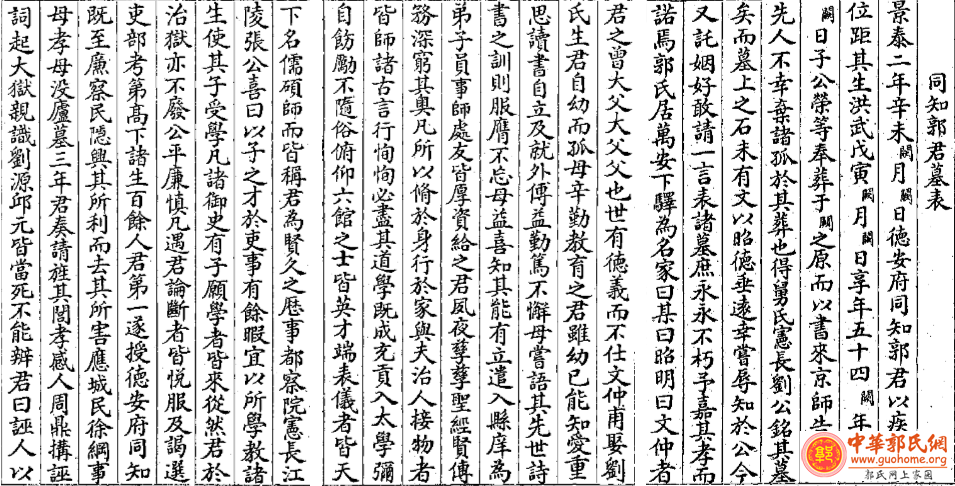 同知郭君墓表
景泰二年辛未闕月闕日德安府同知郭君以疾
位距其生洪武戊寅闕月闕日享年五十四闕年
闕日子公榮等奉葬于闕之原而以書來京師
先人不幸棄諸孤於其葬也得舅氏憲長劉公銘其墓
矣而墓上之石未有文以昭德垂遠幸嘗辱知於公今
又託姻好敢請一言表諸墓庶永永不朽予嘉其孝而
諾焉郭氏居萬安下驛為名家曰某曰昭明曰文仲者
君之曾大父大父父也世有德義而不仕文仲甫娶劉
氏生君自幼而孤母辛勤教育之君雖幼已能知愛重
思讀書自立及就外傅益勤篤不懈母嘗語其先世詩
書之訓則服膺不忘母益喜知其能有立遣入縣庠為
弟子員事師處友皆厚資給之君夙夜孳孳聖經賢傳
務深窮其奧凡所以脩於身行於家與夫治人接物者
皆師諸古言行恂恂必盡其道學既成充貢入太學彌
自飭勵不隨俗俯仰六館之士皆英才端表儀者皆天
下名儒碩師而皆稱君為賢久之歷事都察院憲長江
陵張公喜曰以子之才於吏事有餘暇宜以所學教諸
生使其子受學凡諸御史有子願學者皆來從然君於
治獄亦不廢公平廉慎凡遇君論斷者皆悅服及謁選
吏部考第高下諸生百餘人君第一遂授德安府同知
既至廉察民隱興其所利而去其所害應城民徐綱事
母孝母没廬墓三年君奏請旌其閭孝感人周鼎搆誣
詞起大獄親識劉源邱元皆當死不能辯君曰誣人以
中華郭氏網
www.guohome.org
郭氏网上家园